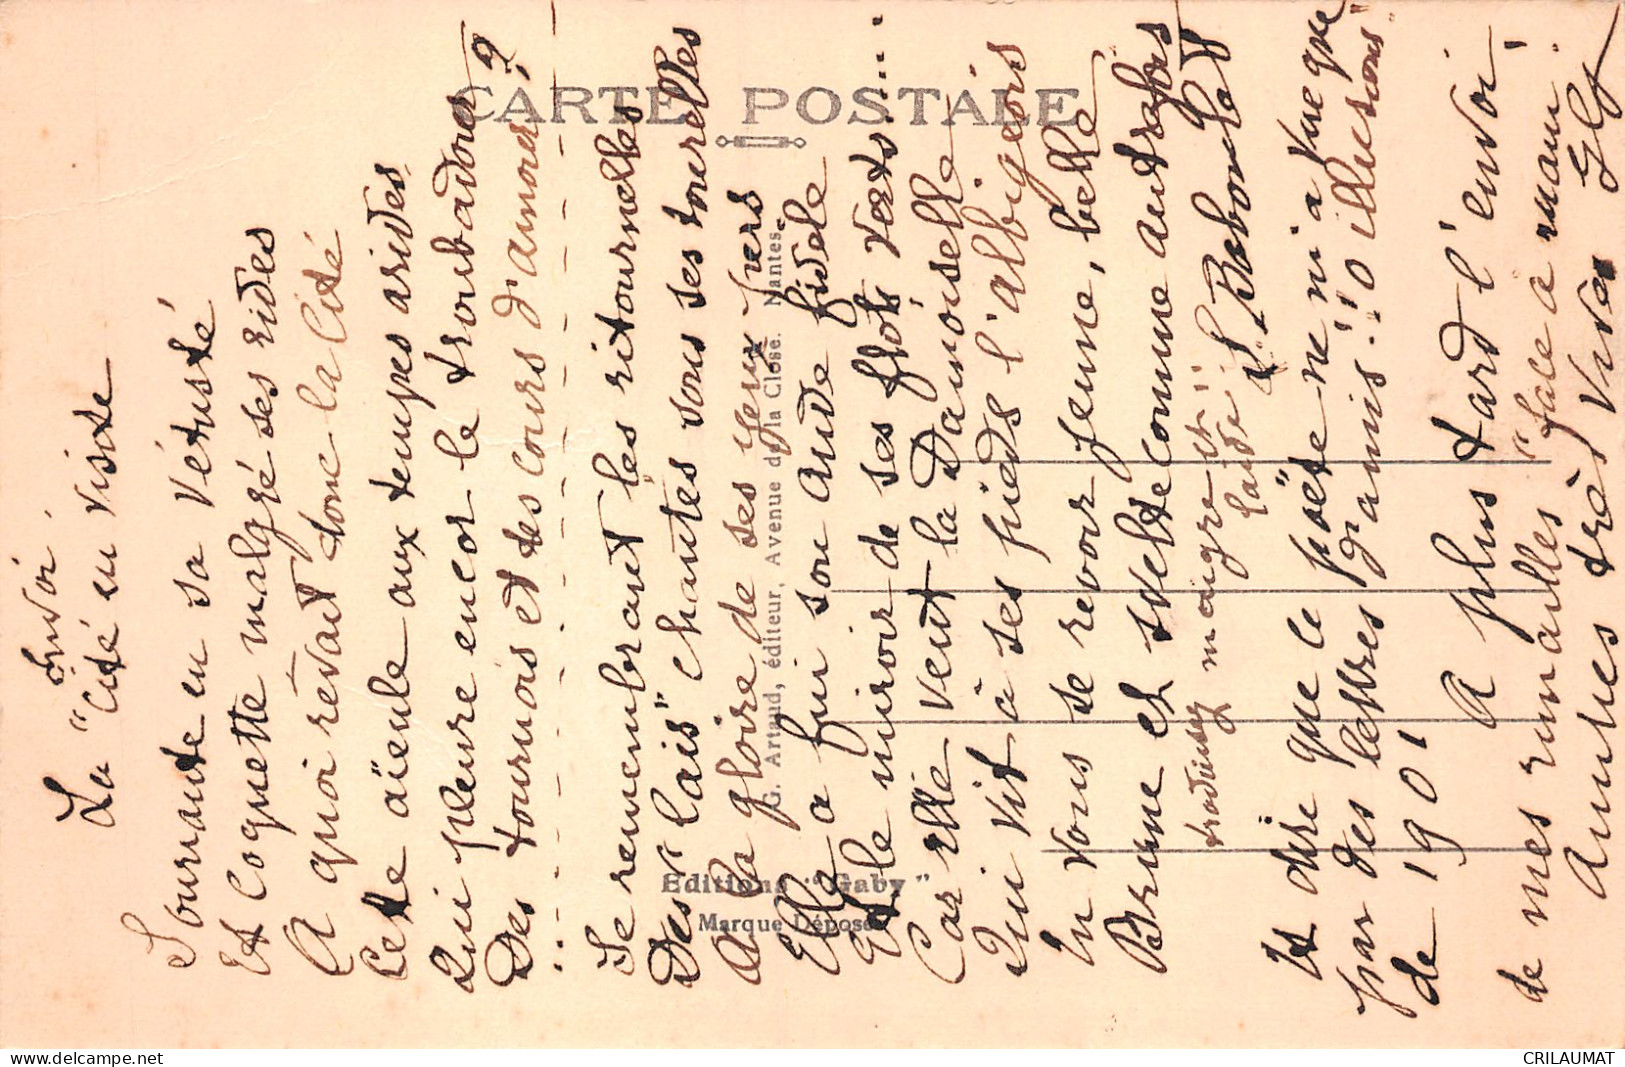 Envoi
La "Cité en visite
Souriante en sa vétusté
Et coquette malgré ses rides
A quoi rêvait donc la Cité
Cette aïeule aux tempes arides
Qui pleure encor le troubadour
Des tournois et des cours d'amour ?
Se remembrant les ritournelles
Des "lais" chantés sous ses tourelles
A la gloire de ses yeux pers
Elle a fui son Aude fidèle
Et le miroir de ses flots verts...
Car elle veut la Damoiselle
Qui vit à ses pieds l'albigeois
En vous se revoir jeune, belle
Brune et svelte comme autrefois
traduisez maigre et laide !!
Et dire que le poëte ne m'a vue que
par des lettres d'amis !! "O illusions"
de 1901
A plus tard l'envoi
de mes rimailles "face à main"
Amitiés très vives
CARTE POSTALE
Editions "Gaby"
Marque Déposée
G. Artaud, éditeur, Avenue de la Close. Nantes.
CRILAUMAT